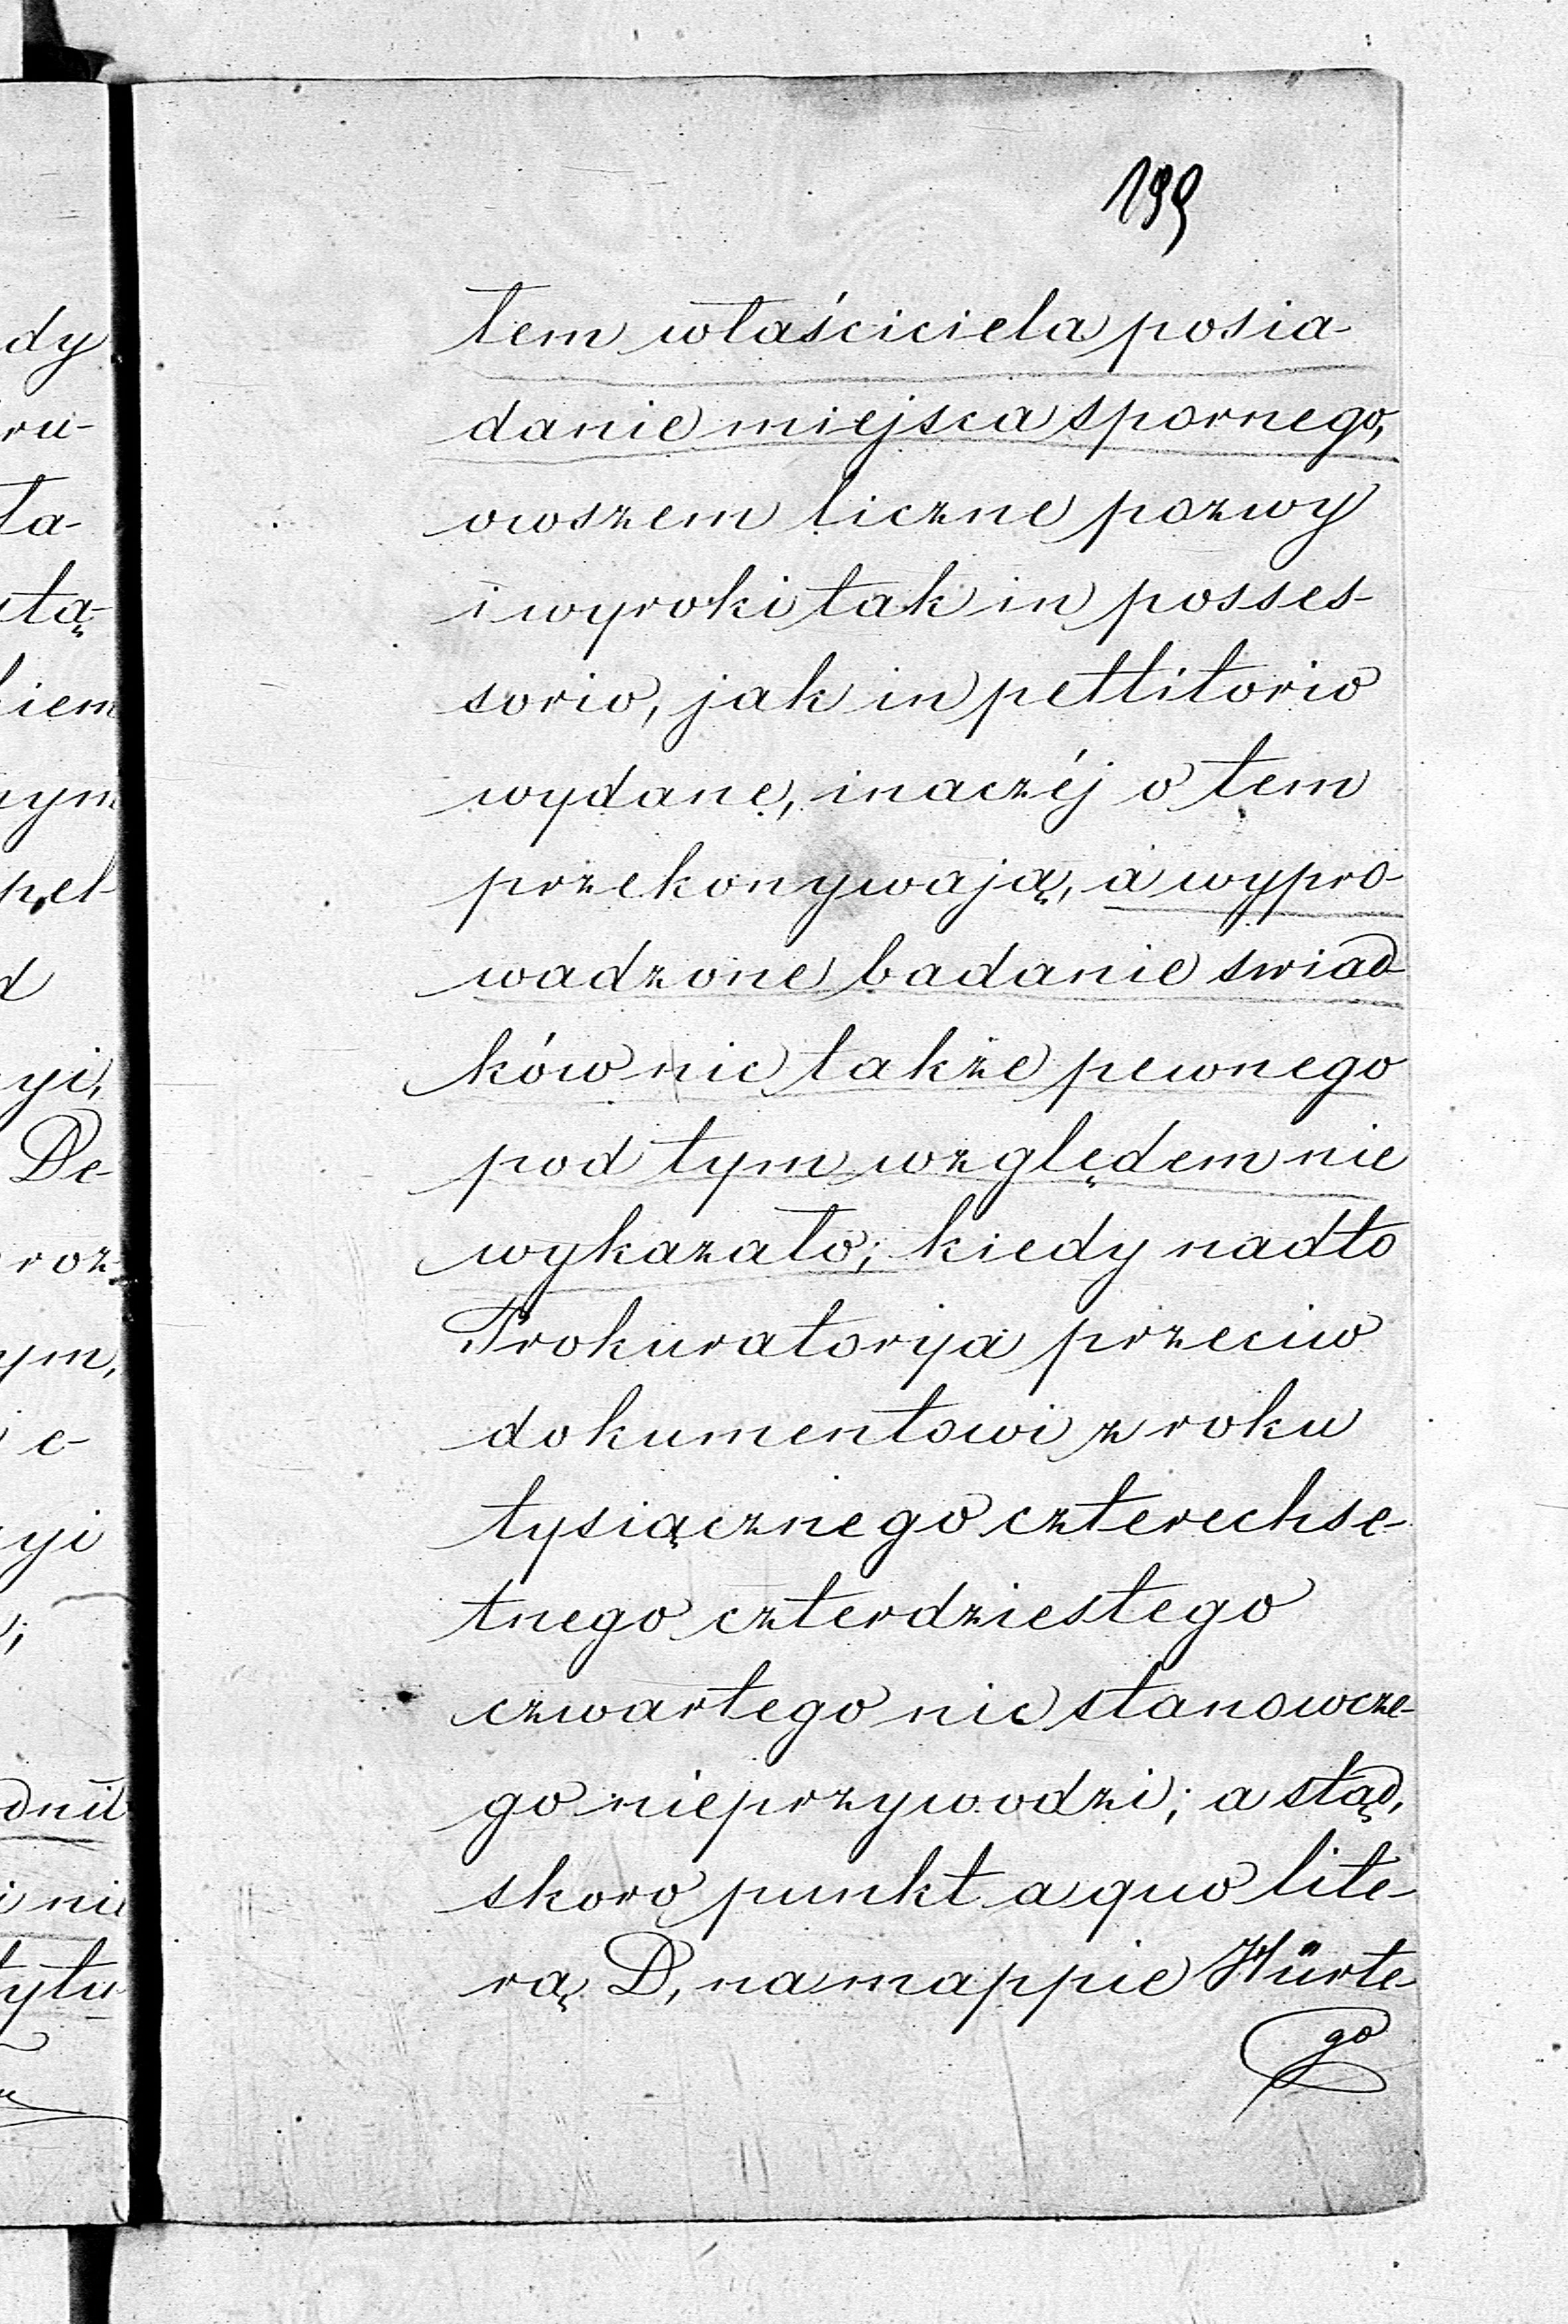 199
tem właściciela posia-
danie miejsca spornego,
owszem liczne pozwy
i wyroki tak in posses-
sorio, jak in pettitorio
wydane, inaczéj o tem
przekonywają, a wypro-
wadzone badanie swiad-
ków nic także pewnego
pod tym względem nie
wykazało; kiedy nadto
Prokuratorija przeciw
dokumentowi z roku
tysiącznego czterechse-
tnego czterdziestego
czwartego nic stanowcze-
go nieprzywodzi; a stąd,
skoro punkt a quo lite-
rą D, na mappie Hürte-
go